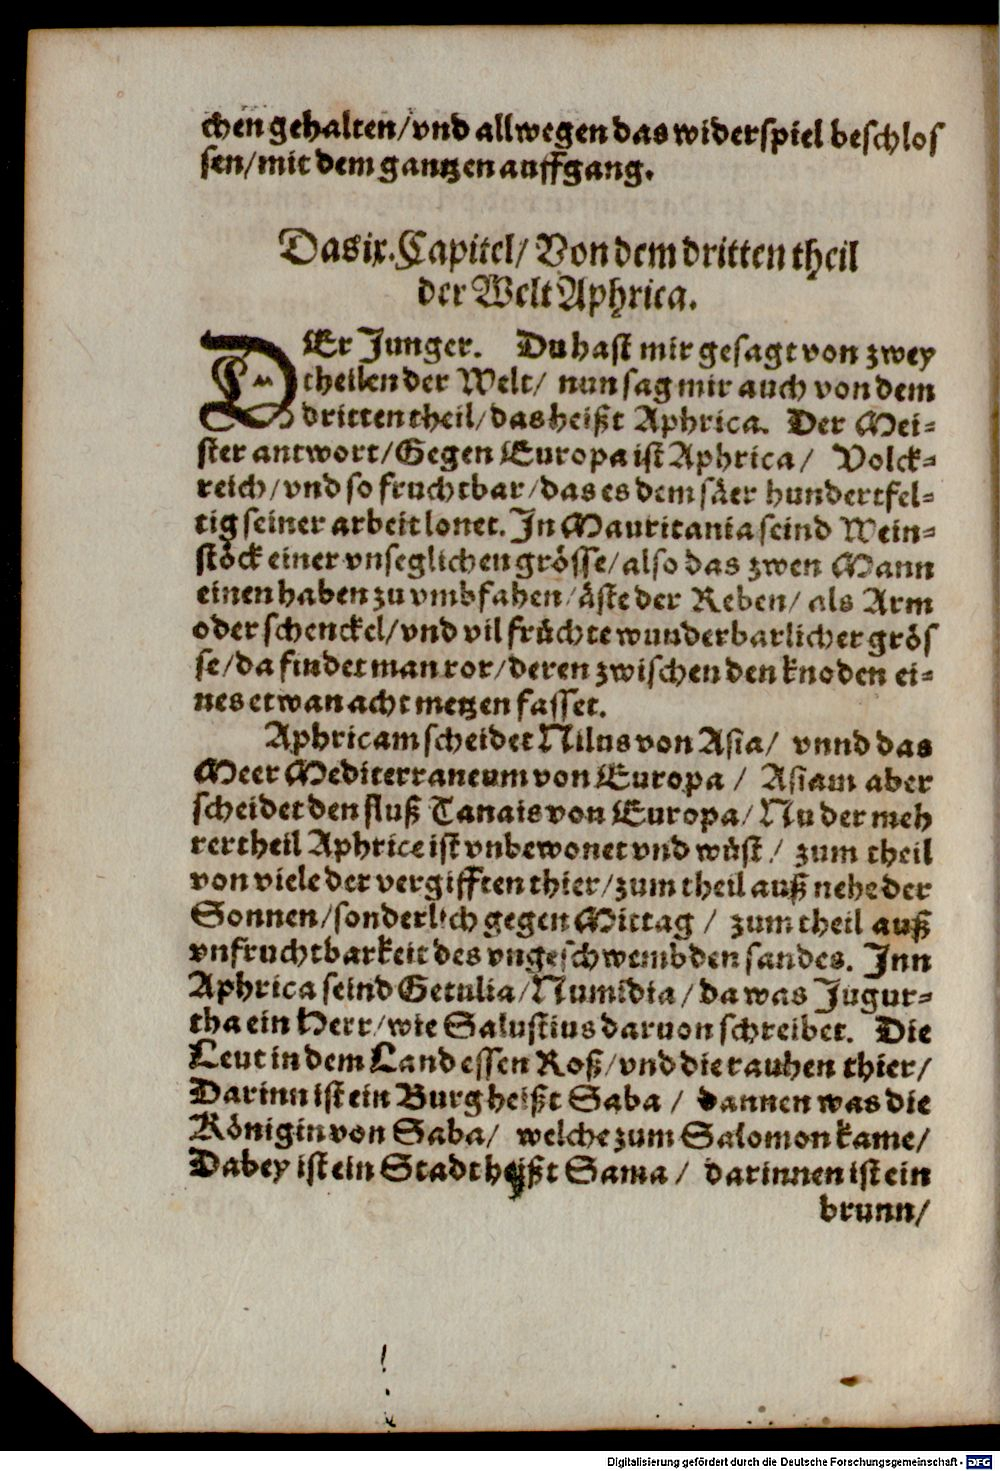 chen gehalten/vnd allwegen das widerspiel beschlos
sen/mit dem gantzen auffgang.
Das ix. Capitel/ Von dem dritten theil
der Welt Aphrica.
DEr Junger. Du hast mir gesagt von zwey
theilen der Welt/ nun sag mir auch von dem
dritten theil/das heißt Aphrica. Der Mei-
ster antwort/Gegen Europa ist Aphrica/ Volck-
reich/vnd so fruchtbar/das es dem säer hundertfel-
tig seiner arbeit lonet. In Mauritania seind Wein-
stöck einer vnseglichen grösse/also das zwen Mann
einen haben zu vmbfahen/äste der Reben/ als Arm
oder schenckel/vnd vil früchte wunderbarlicher grös
se/da findet man ror/deren zwischen den knoden ei-
nes etwan acht metzen fasset.
Aphricam scheidet Nilus von Asia/ vnnd das
Meer Mediterraneum von Europa / Asiam aber
scheidet den fluß Tanais von Europa/Nu der meh
rertheil Aphrice ist vnbewonet vnd wüst/ zum theil
von viele der vergifften thier/zum theil auß nehe der
Sonnen/sonderlich gegen Mittag / zum theil auß
vnfruchtbarkeit des vngeschwembden sandes. Inn
Aphrica seind Getulia/Numidia/da was Jugur-
tha ein Herr/wie Salustius daruon schreibet. Die
Leut in dem Land essen Roß/vnd die rauhen thier/
Darinn ist ein Burg heißt Saba / dannen was die
Königin von Saba/ welche zum Salomon kame/
Dabey ist ein Stadt heißt Sama / darinnen ist ein
brunn/
Digitalisierung gefördert durch die Deutsche Forschungsgemeinschaft - DFG